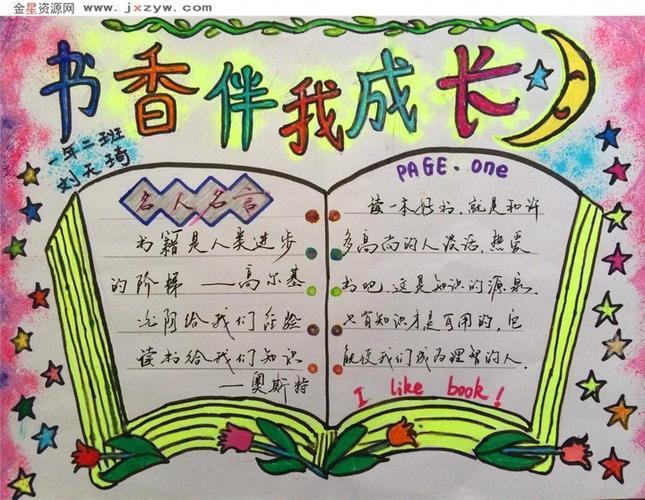 金星资源网 www.jxzyw.com
书香伴我成长
一年二班
刘天琦
名人名言
书籍是人类进步
的阶梯——高尔基
沧阅给我们经验
读书给我们知识
——奥斯特
PAGE.one
读一本好书,就是和许
多高尚的人谈话,热爱
书吧,这是知识的源泉,
只有知识才是有用的,它
能使我们成为理智的人.
I like book!